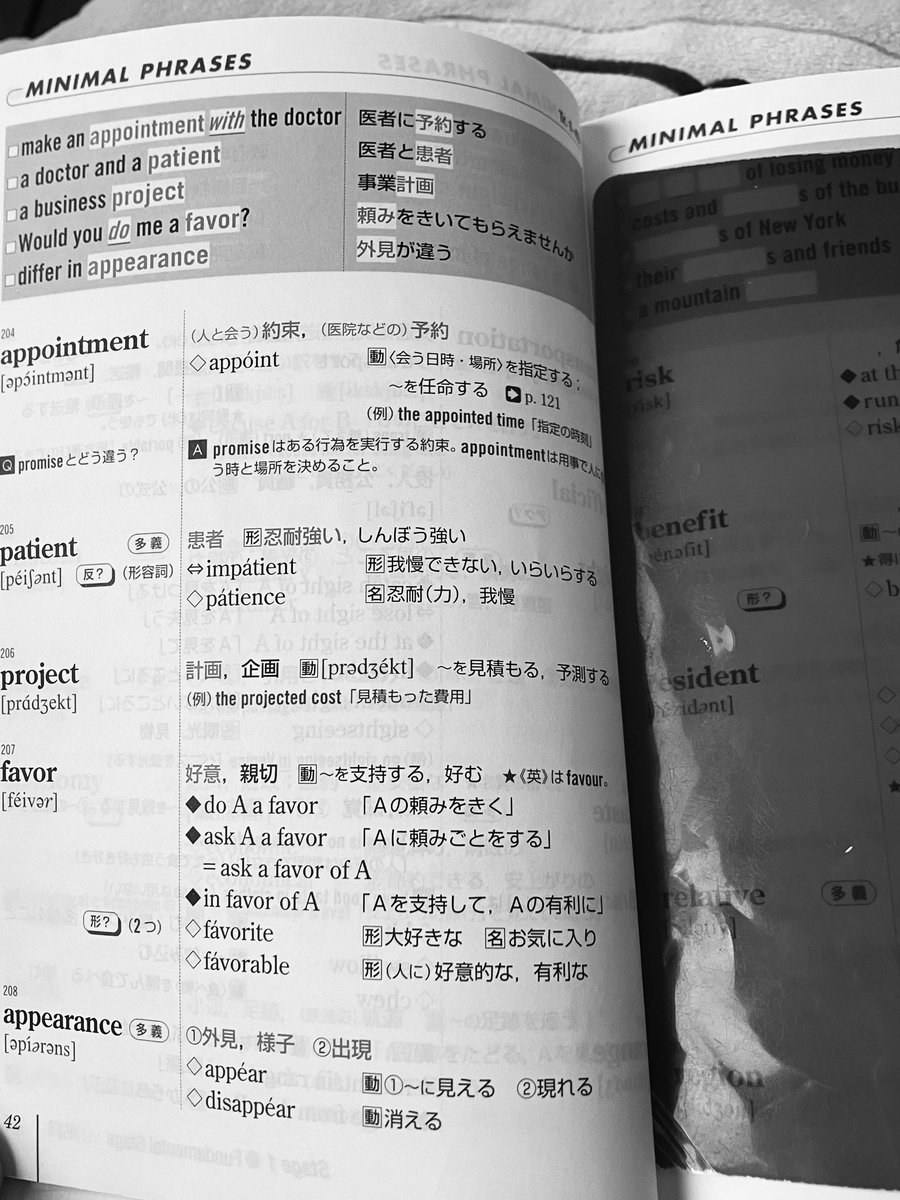 MINIMAL PHRASES
make an appointment with the doctor 医者に予約する
a doctor and a patient 医者と患者
a business project 事業計画
Would you do me a favor? 頼みをきいてもらえませんか
differ in appearance 外見が違う
204
appointment (人と会う)約束, (医院などの)予約
[əpɔ́intmənt] ◇appóint 動〈会う日時・場所〉を指定する;
~を任命する p. 121
(例) the appointed time「指定の時刻」
Q promiseとどう違う? A promiseはある行為を実行する約束。appointmentは用事で人に
う時と場所を決めること。
205
patient 多義 患者 形忍耐強い, しんぼう強い
[péiʃənt] 反? (形容詞) ⇔impátient 形我慢できない, いらいらする
◇pátience 名忍耐(力), 我慢
206
project 計画, 企画 動[prədʒékt] ~を見積もる, 予測する
[prádʒekt] (例) the projected cost「見積もった費用」
207
favor 好意, 親切 動~を支持する, 好む ★《英》は favour。
[féivər] ◆do A a favor 「Aの頼みをきく」
◆ask A a favor 「Aに頼みごとをする」
= ask a favor of A
◆in favor of A 「Aを支持して, Aの有利に」
形? (2つ) ◇fávorite 形大好きな 名お気に入り
◇fávorable 形(人に)好意的な, 有利な
208
appearance 多義 ①外見, 様子 ②出現
[əpíərəns] ◇appéar 動①~に見える ②現れる
◇disappéar 動消える
42
MINIMAL PHRASES
of losing money
costs and s of the bu
s of New York
their s and friends
a mountain
risk ◆at th
[rísk] ◆run
◇risk
benefit
[bénəfit]
形?
esident
ézidənt]
relative 多義